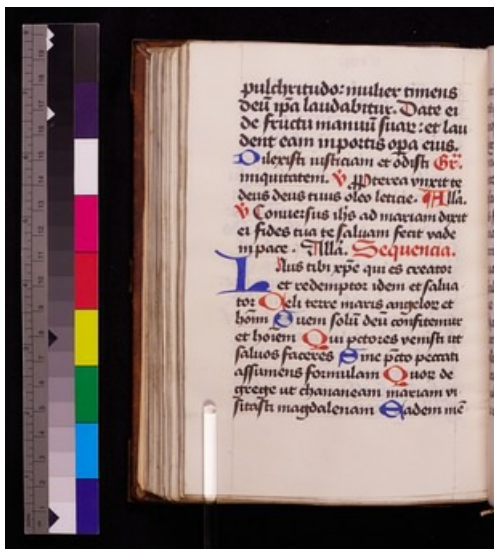 pulchritudo: mulier timens
deū ip̄a laudabitur. Date ei
de fructu manuū suaꝝ: et lau
dent eam in portis op̄a eius.
Dilexisti iusticiam et odisti Gr̄.
iniquitatem. ℣ p̄pterea vnxit te
deus deus tuus oleo leticie. Allā.
℣ Conuersus ih̄s ad mariam dixit
ei fides tua te saluam fecit vade
in pace. Allā. Sequencia.
Laus tibi xp̄e qui es creator
et redemptor idem et salua
tor Celi terre maris angeloꝝ et
hōīm Quem solū deū confitemur
et hoīem Qui pctores venisti ut
saluos faceres Sine pctō peccati
assumens formulam Quoꝝ de
grege ut chananeam mariam vi
sitasti magdalenam Eadem mē